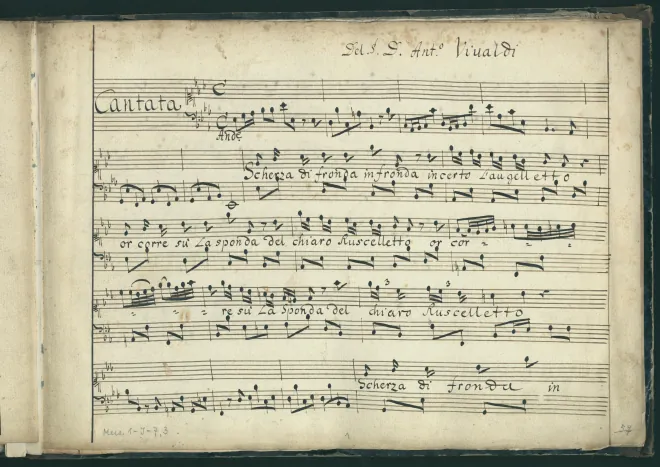 Del S. D. Ant.º Vivaldi
Cantata
And.e
Scherza di fronda in fronda incerto L'augelletto
or corre su La sponda del chiaro Ruscelletto or cor - - -
- - re su La sponda del chiaro Ruscelletto
3 3
Scherza di fronda in